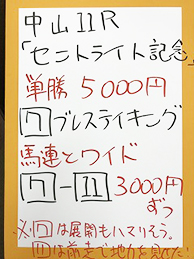 中山11R
「セントライト記念」
単勝 5000円
7 ブレステイキング
馬連とワイド
7-11 3000円
ずつ
※7は展開もハマりそう。
11は前走で地力を見せた!